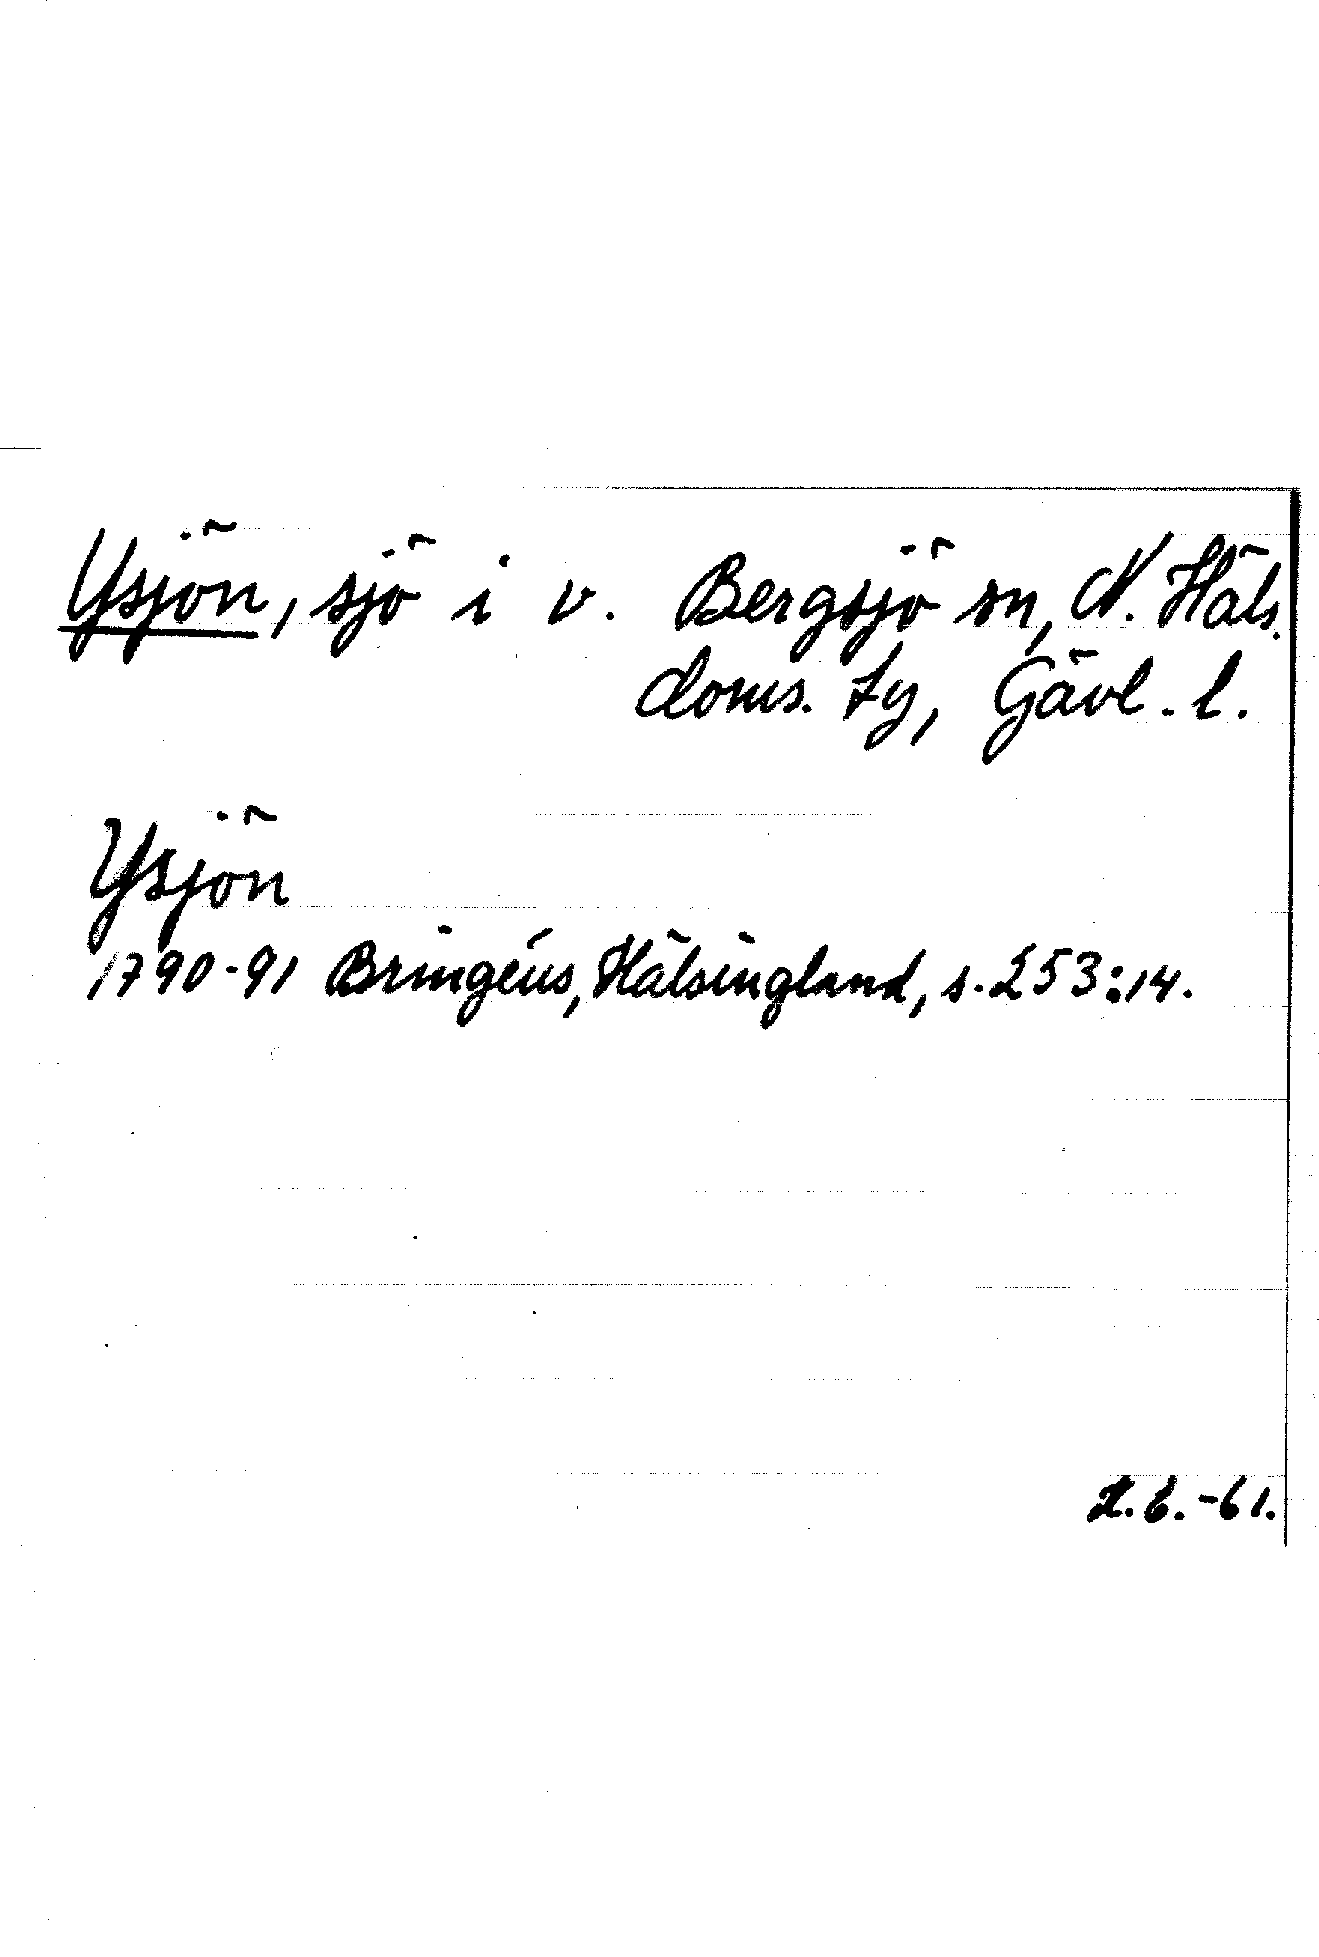 Ysjön, sjö i v. Bergsjö sn, N. Häls.
doms. tg, Gävl. l.
Ysjön
1790-91 Bringéus, Hälsingland, s. 253:14.
-61.